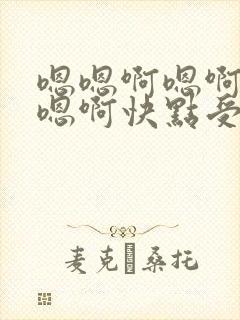 嗯嗯啊嗯啊
嗯啊快點受
麦克 桑托